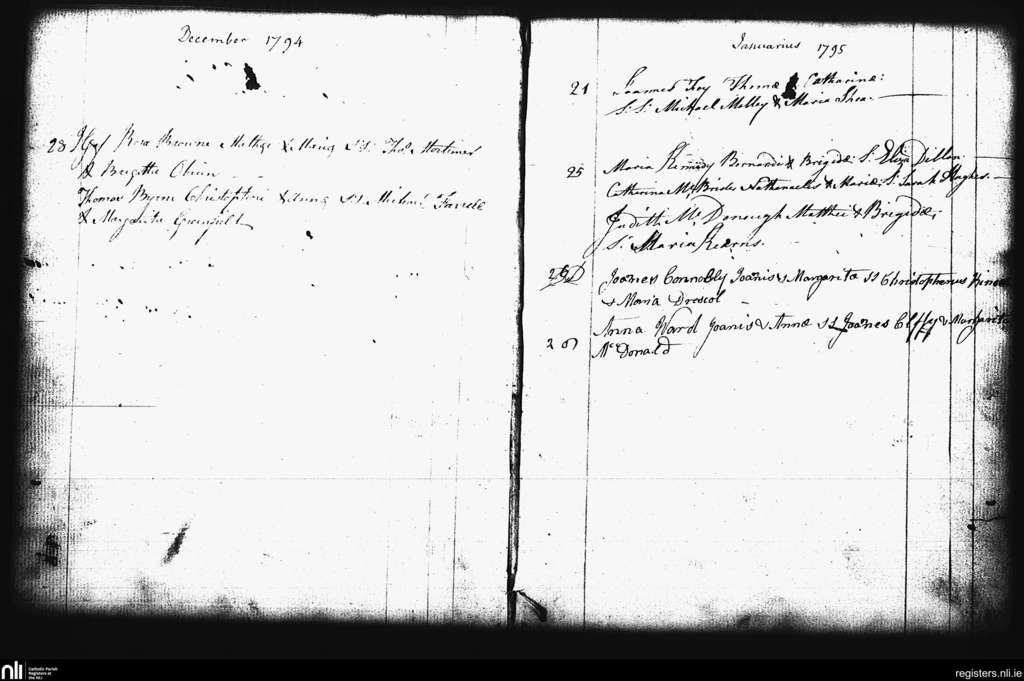 December 1794
28 Rosa Browne Mathei & Maria SS: Thos. Mortimer
& Brigitta
Thomas Byrne Christophori & Anna SS Michael Farrele
& Margarita
Januarius 1795
21 Joannes Foy Thomæ & Catharinæ:
S.S: Michael Molloy & Maria Shea
25 Maria Kennedy Bernardi & Brigidæ S. Eliza Dillon
Catherina McBrides Nathanaelis & Mariæ: S: Sarah Hughes.
Judith McDonough Matthei & Brigidæ;
S. Maria Kearns.
26 Joanes Connolly Joanis & Margarita SS Christopherus
& Maria Drescol
Anna Ward Joanis & Annæ SS Joanes & Margarita
McDonald
nli Catholic Parish
Registers at
the NLI
registers.nli.ie